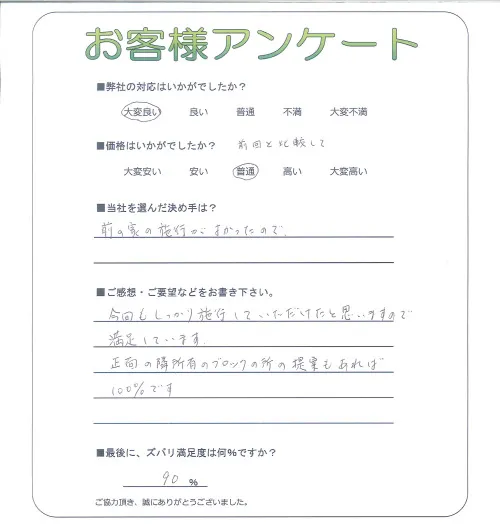 お客様アンケート
■弊社の対応はいかがでしたか？
大変良い 良い 普通 不満 大変不満
■価格はいかがでしたか？ 前回と比較して
大変安い 安い 普通 高い 大変高い
■当社を選んだ決め手は？
前の家の施行がよかったので.
■ご感想・ご要望などをお書き下さい。
今回もしっかり施行していただけたと思いますので
満足しています.
正面の隣所有のブロックの所の提案もあれば
100%です
■最後に、ズバリ満足度は何%ですか？
90 %
ご協力頂き、誠にありがとうございました。